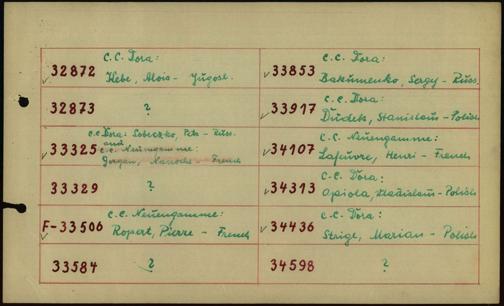 C.C. Dora:
32872 Hebe, Alois - Jugosl.
32873 ?
C.C. Dora: Sobeczko, Petr - Russ.
and
33325 C.C. Neuengamme:
Gorgan, - French
33329 ?
C.C. Neuengamme:
F-33506 Ropert, Pierre - French
33584 ?
C.C. Dora:
33853 Bakumenko, Sergy - Russ.
C.C. Dora:
33917 Dudek, Stanislaus - Polish
C.C. Neuengamme:
34107 Lafeuvre, Henri - French
C.C. Dora:
34313 Opiola, - Polish
C.C. Dora:
34436 Strige, Marian - Polish
34598 ?